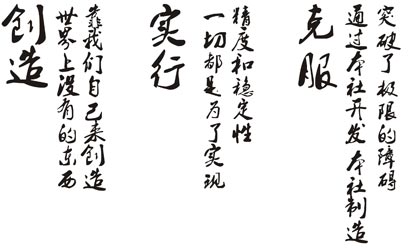 创造
世界上没有的东西
靠我们自己来创造
实行
一切都是为了实现
精度和稳定性
克服
通过本社开发本社制造
突破了极限的障碍